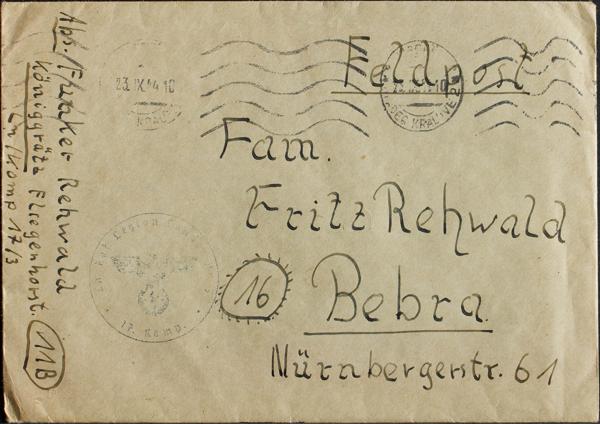 Feldpost
Fam.
Fritz Rehwald
16
Bebra
Nürnbergerstr. 61
Abs. Funker Rehwald
Königgrätz Fliegenhorst.
Ln/Komp 17/3
11B
23.IX.44.10
HRADEC KRÁLOVÉ 2
17. Komp.